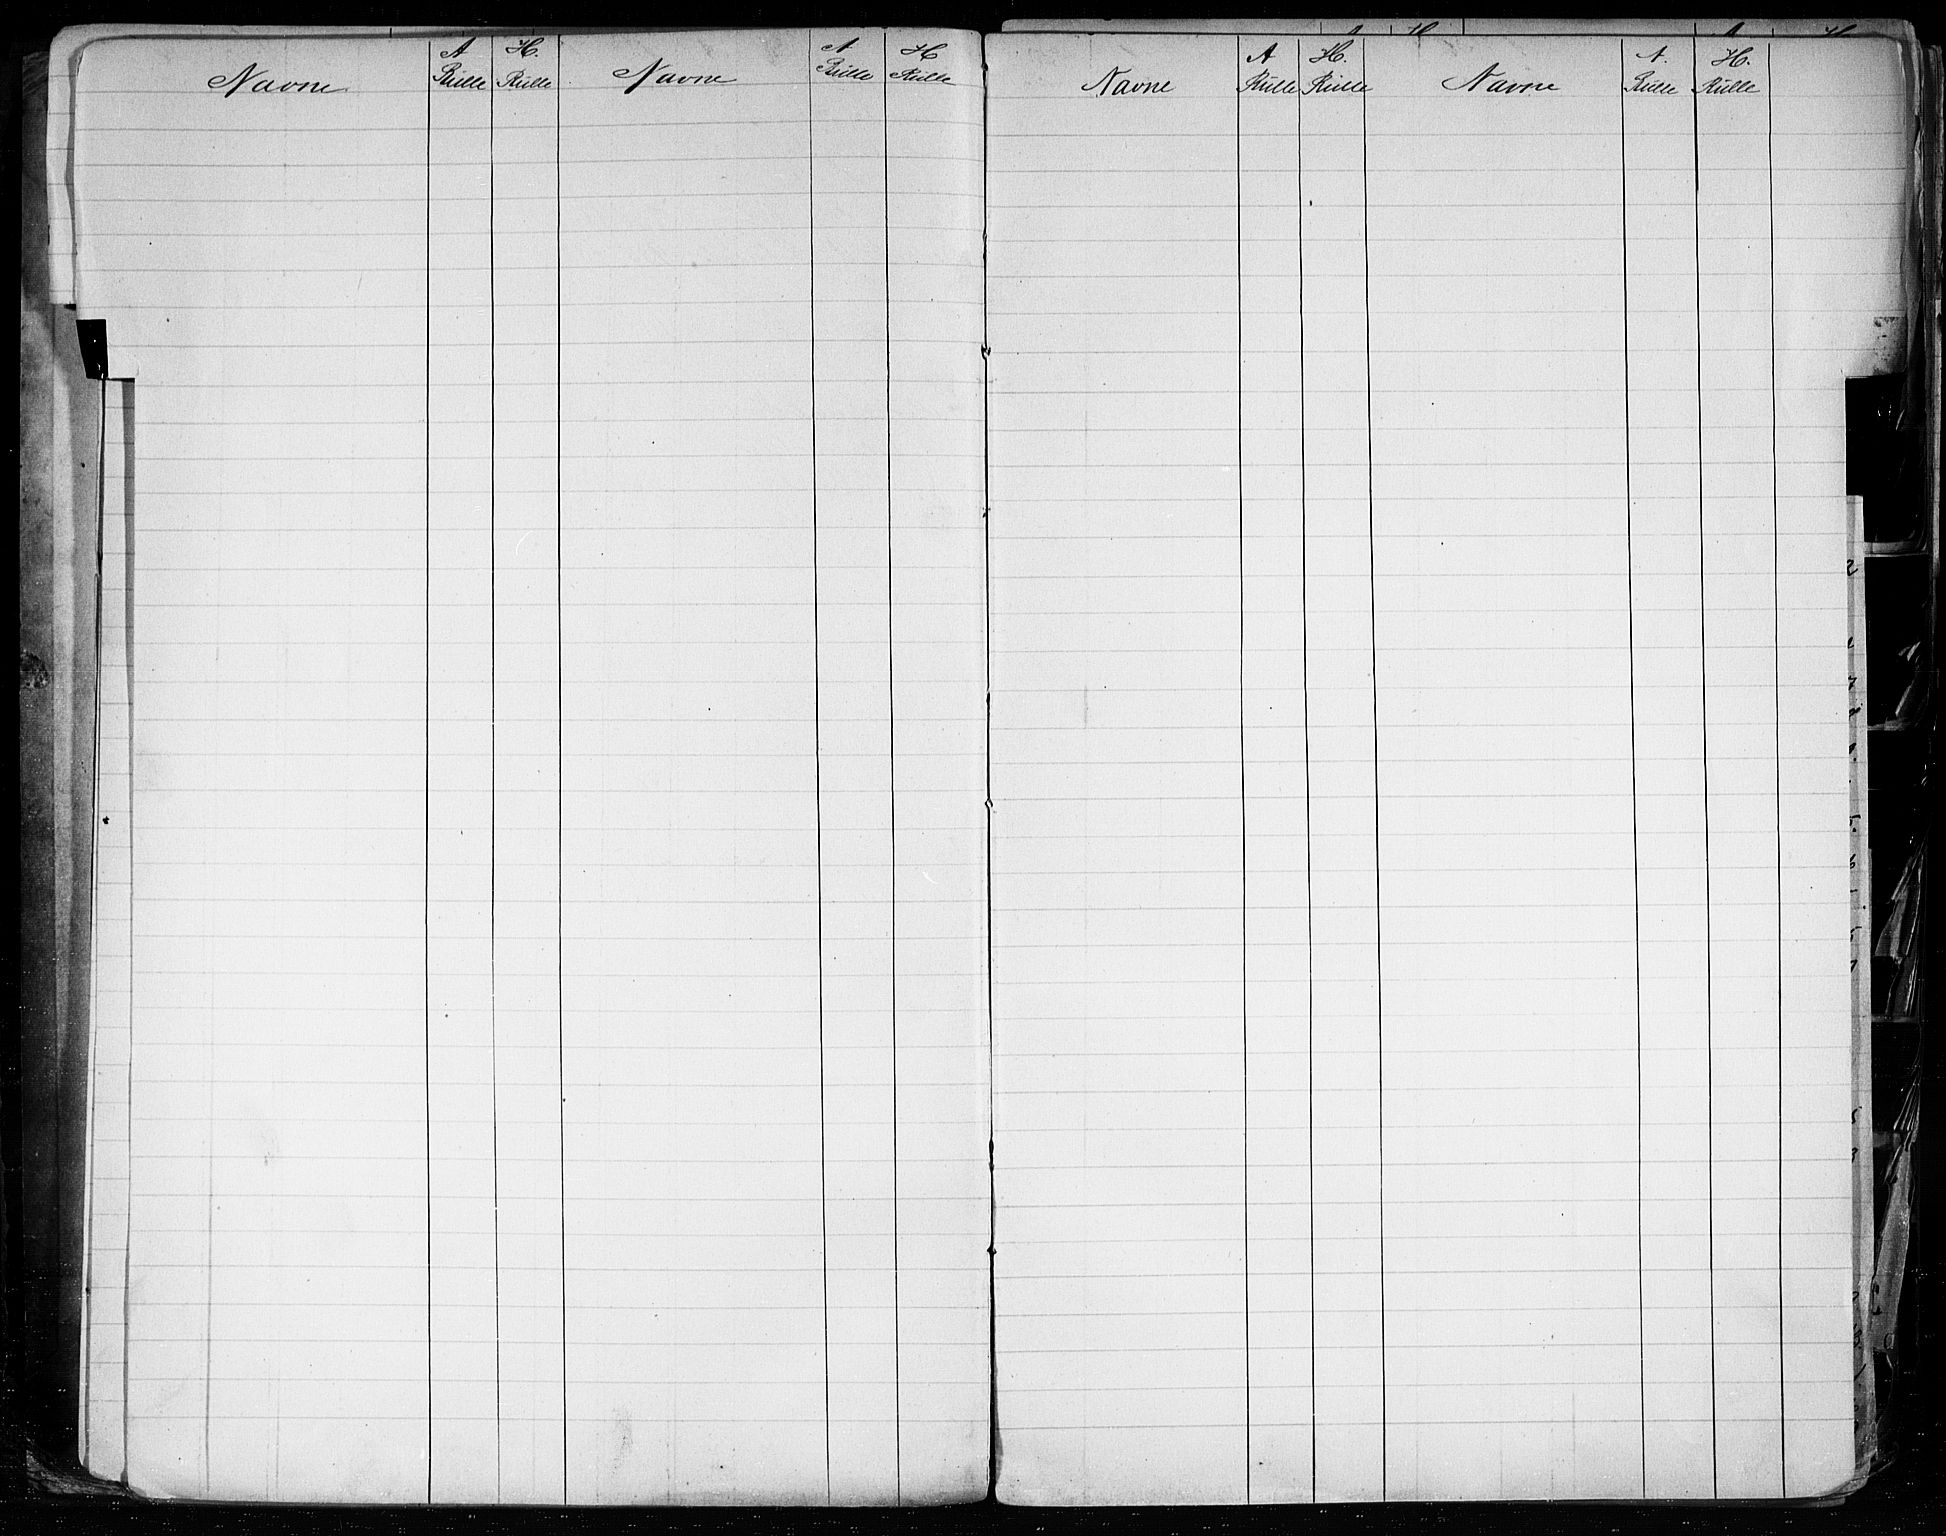 Navne A Rulle H. Rulle Navne A Rulle H Rulle
Navne A Rulle H. Rulle Navne A. Rulle H. Rulle